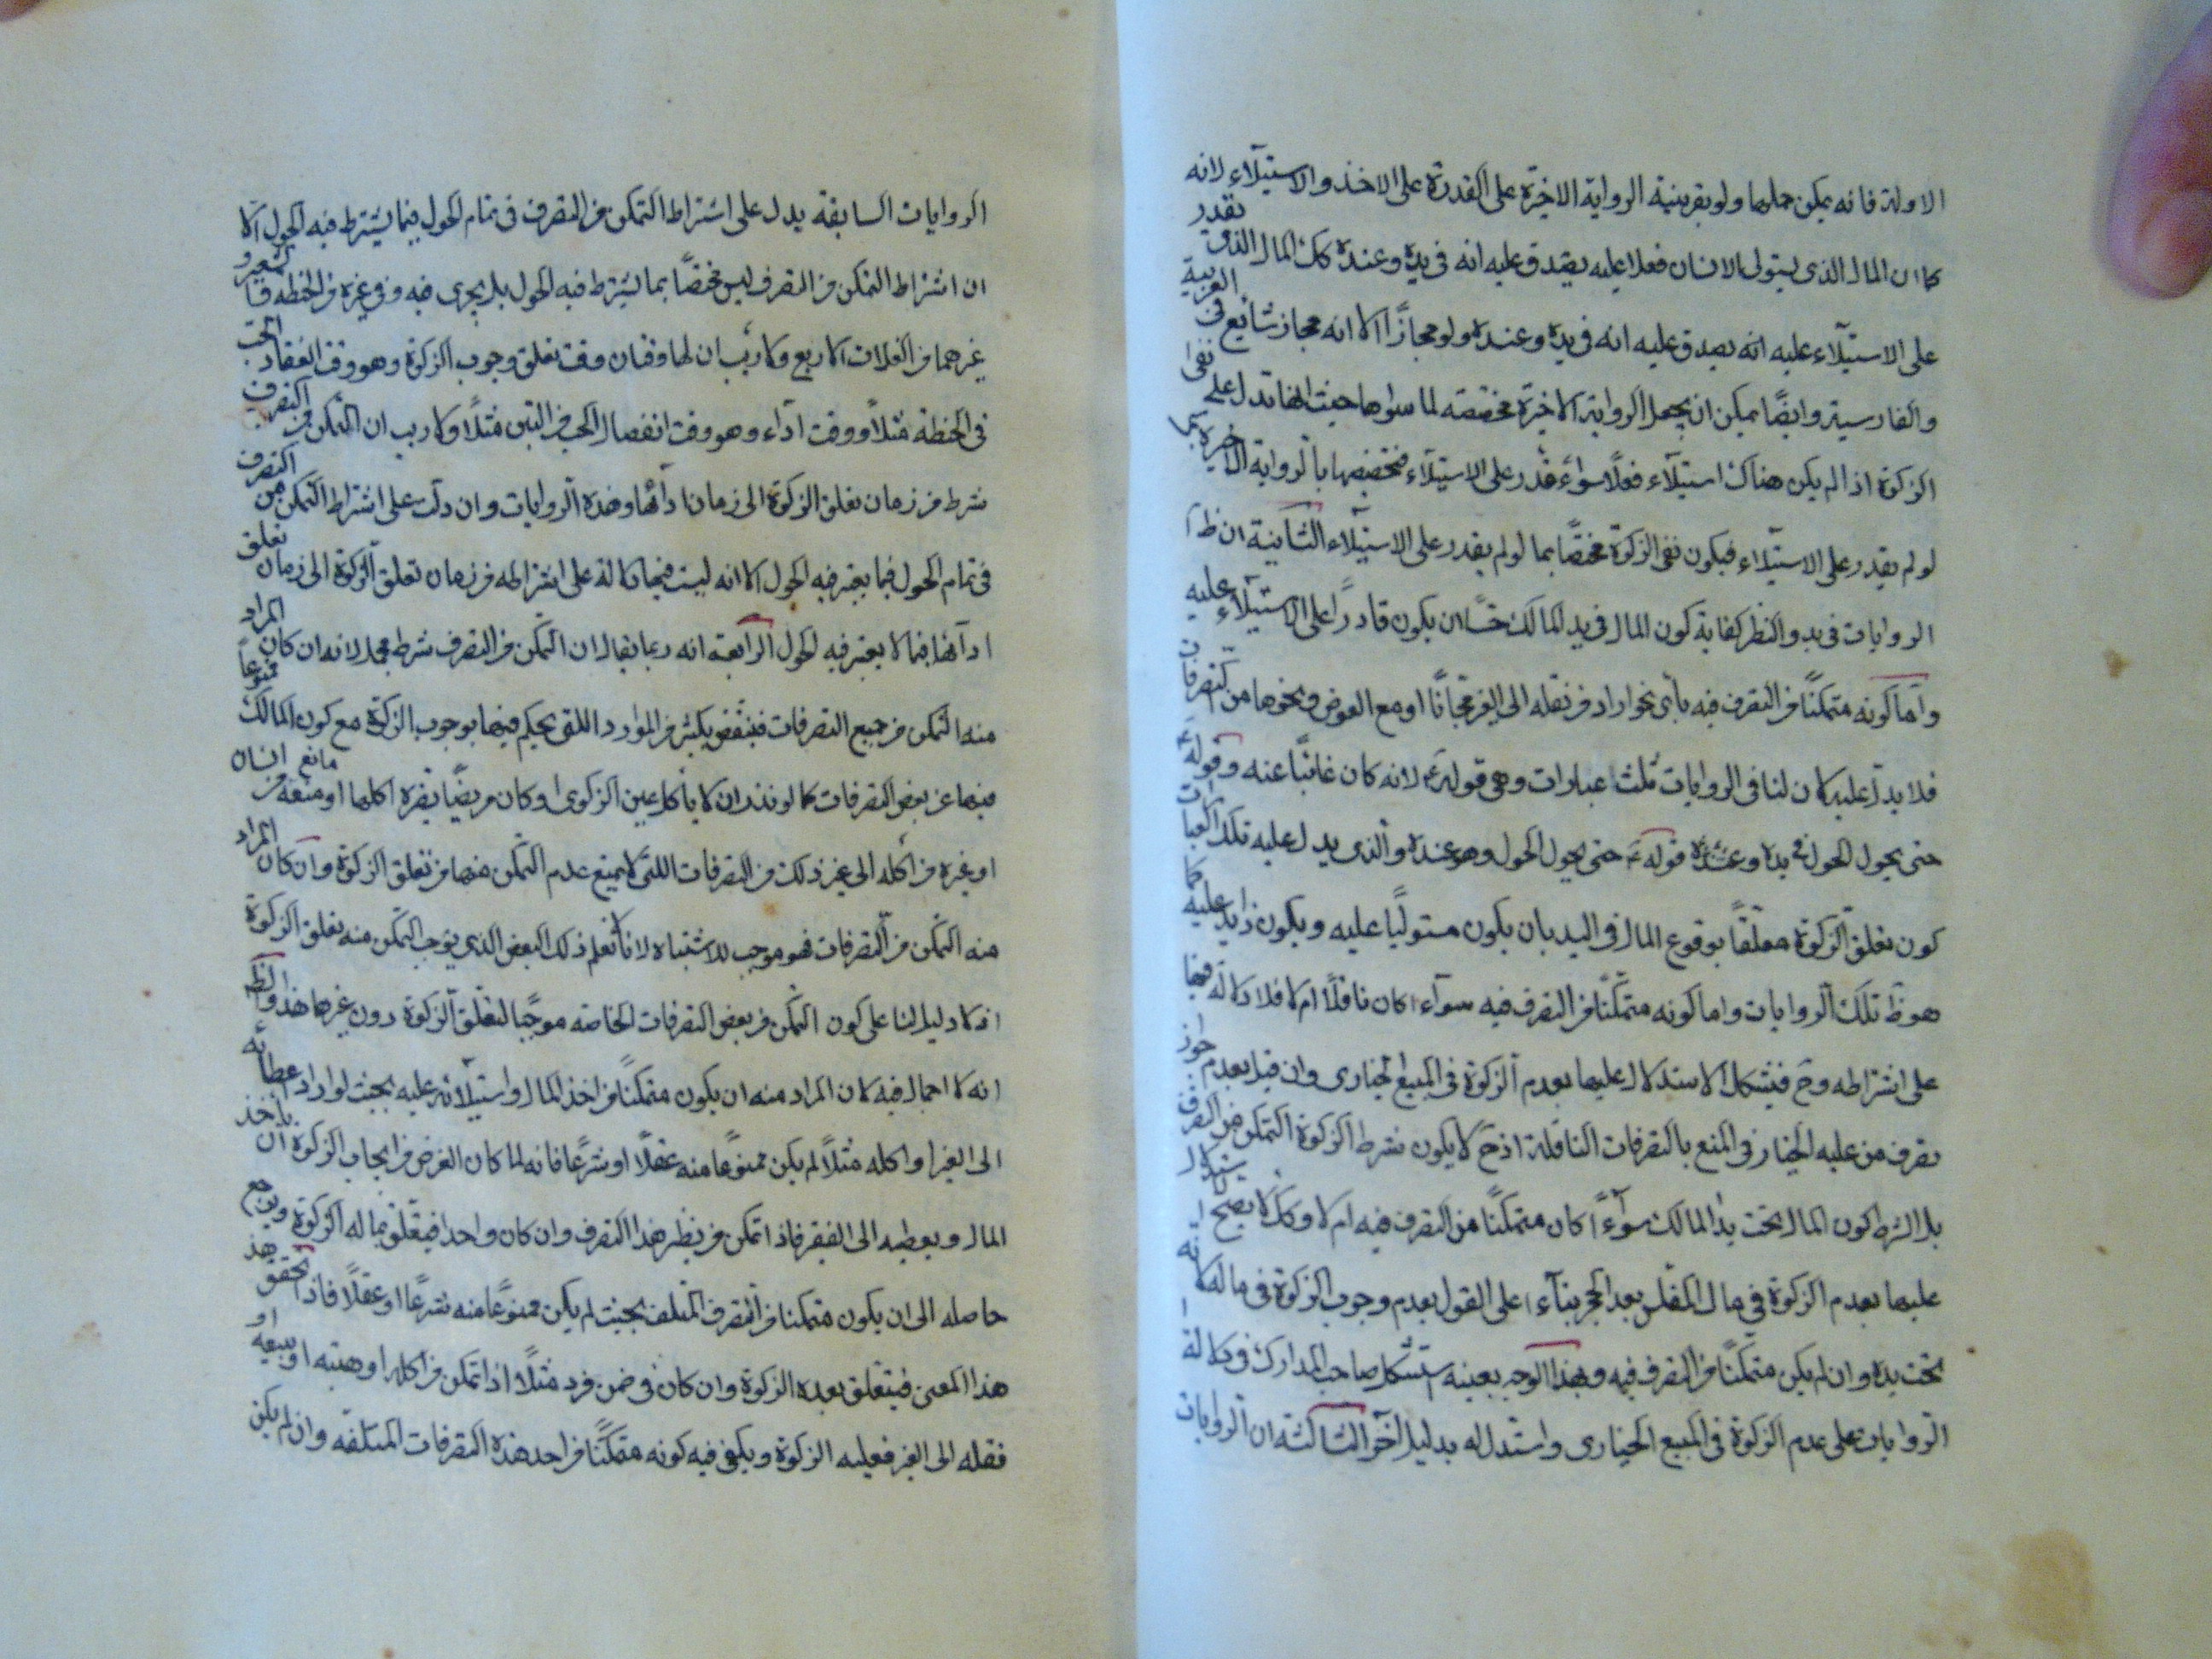 الاولة فانه يمكن حملها ولو بقرينة الرواية الاخيرة على القدرة على الاخذ والاستيلاء لانه
كما ان المال الذى يستولى الانسان فعلا عليه يصدق عليه انه فى يده وعنده كك المال الذى يقدر
على الاستيلاء عليه انه يصدق عليه انه فى يده وعنده ولو مجازًا الا انه مجاز شايع فى العربية
والفارسية وايضًا يمكن ان يجعل الرواية الاخيرة مخصصة لما سواها حيث انها تدل على نفى
الزكوة اذا لم يكن هناك استيلاء فعلًا سواء قدر على الاستيلاء فتخصيصها بالرواية الاخيرة بما
لو لم يقدر على الاستيلاء فيكون نفى الزكوة مختصًا بما لو لم يقدر على الاستيلاء الثانية ان ظ
الروايات فى بدو النظر كفاية كون المال فى يد المالك حسًا بان يكون قادرًا على الاستيلاء عليه
واما كونه متمكنًا من التصرف فيه بأى نحو اراد من نقله الى الغير مجانًا او مع العوض ونحوها من التصرفات
فلا يدل عليه لان لنا فى الروايات ثلث عبارات وهى قوله ع لانه كان غائبًا عنه وقوله ع
حتى يحول الحول فى يده وعنده قوله ع حتى يحول الحول وهو عنده والذى يدل عليه تلك العبارات
كون تعلق الزكوة معلقًا بوقوع المال فى اليد بان يكون مستوليًا عليه ويكون زايد عليه كما
هو ظ تلك الروايات واما كونه متمكنًا من التصرف فيه سواء كان ناقلًا ام لا فلا دلالة فيها
على اشتراطه وح فيشكل الاستدلال عليها بعدم الزكوة فى المبيع الخيارى وان قيل بعدم جواز
تصرف من عليه الخيار فى المنع بالتصرفات الناقلة اذ ح لا يكون شرط الزكوة التمكن من التصرف
بل الشرط كون المال تحت يد المالك سواءً كان متمكنًا من التصرف فيه ام لا وكك لا يصح استدلال
عليها بعدم الزكوة فى مال المفلس بعد الحجر بناء على القول بعدم وجوب الزكوة فى ماله لانه
تحت يده وان لم يكن متمكنًا من التصرف فيه وبهذا الوجه بعينه استشكل صاحب المدارك فى دلالة
الروايات على عدم الزكوة فى المبيع الخيارى واستدل له بدليل آخر الثالثة ان الروايات
الروايات السابقة يدل على اشتراط التمكن من التصرف فى تمام الحول فيما يشترط فيه الحول الا
ان اشتراط التمكن من التصرف ليس مختصًا بما يشترط فيه الحول بل يجرى فيه وفى غيره من الحنطة والشعير و
غيرهما من الغلات الاربع ولا ريب ان لها وقتان وقت تعلق وجوب الزكوة وهو وقت انعقاد الحب
فى الحنطة مثلًا ووقت اداء وهو وقت انفصال الحب من التبن مثلًا ولا ريب ان التمكن من التصرف
شرط من زمان تعلق الزكوة الى زمان ادائها وهذه الروايات وان دلت على اشتراط التمكن من التصرف
فى تمام الحول فيما يعتبر فيه الحول الا انه ليست فيها دلالة على اشتراطه من زمان تعلق الزكوة الى زمان
ادائها فيما لا يعتبر فيه الحول الرابعة انه ربما يقال ان التمكن من التصرف شرط مجمل لانه ان كان المراد
منه التمكن من جميع التصرفات فينتقض بكثير من الموارد اللتى يحكم فيها بوجوب الزكوة مع كون المالك ممنوعًا
فيها عن بعض التصرفات كما لو نذر ان لا يأكل عين الزكوى او كان مريضًا يضره اكلها او منعه مانع انسان
او غيره من اكله الى غير ذلك من التصرفات اللتى لا يمنع عدم التمكن منها من تعلق الزكوة وان كان المراد
منه التمكن من التصرفات فهو موجب للاشتباه لانا لا نعلم ذلك البعض الذى يوجب التمكن منه تعلق الزكوة
اذ لا دليل لنا على كون التمكن من بعض التصرفات الخاصه موجبًا لتعلق الزكوة دون غيرها هذا والظ
انه لا اجمال فيه لان المراد منه ان يكون متمكنًا من اخذ المال واستيلائه عليه بحيث لو اراد اعطائه
الى الغير او اكله مثلًا لم يكن ممنوعًا منه عقلًا او شرعًا فانه لما كان الغرض من ايجاب الزكوة ان يأخذ
المال ويعطيه الى الفقير فاذا تمكن من نظير هذا التصرف وان كان واحدا فيتعلق بماله الزكوة ويرجع
حاصله الى ان يكون متمكنا من التصرف المتلف بحيث لم يكن ممنوعًا منه شرعًا او عقلًا فاذا تحقق هذ
هذا المعنى فيتعلق بعده الزكوة وان كان فى ضمن فرد مثلًا اذا تمكن من اكله او هبته او بيعه او
نقله الى الغير فعليه الزكوة ويكفى فيه كونه متمكنًا من احد هذه التصرفات المتلفه وان لم يكن